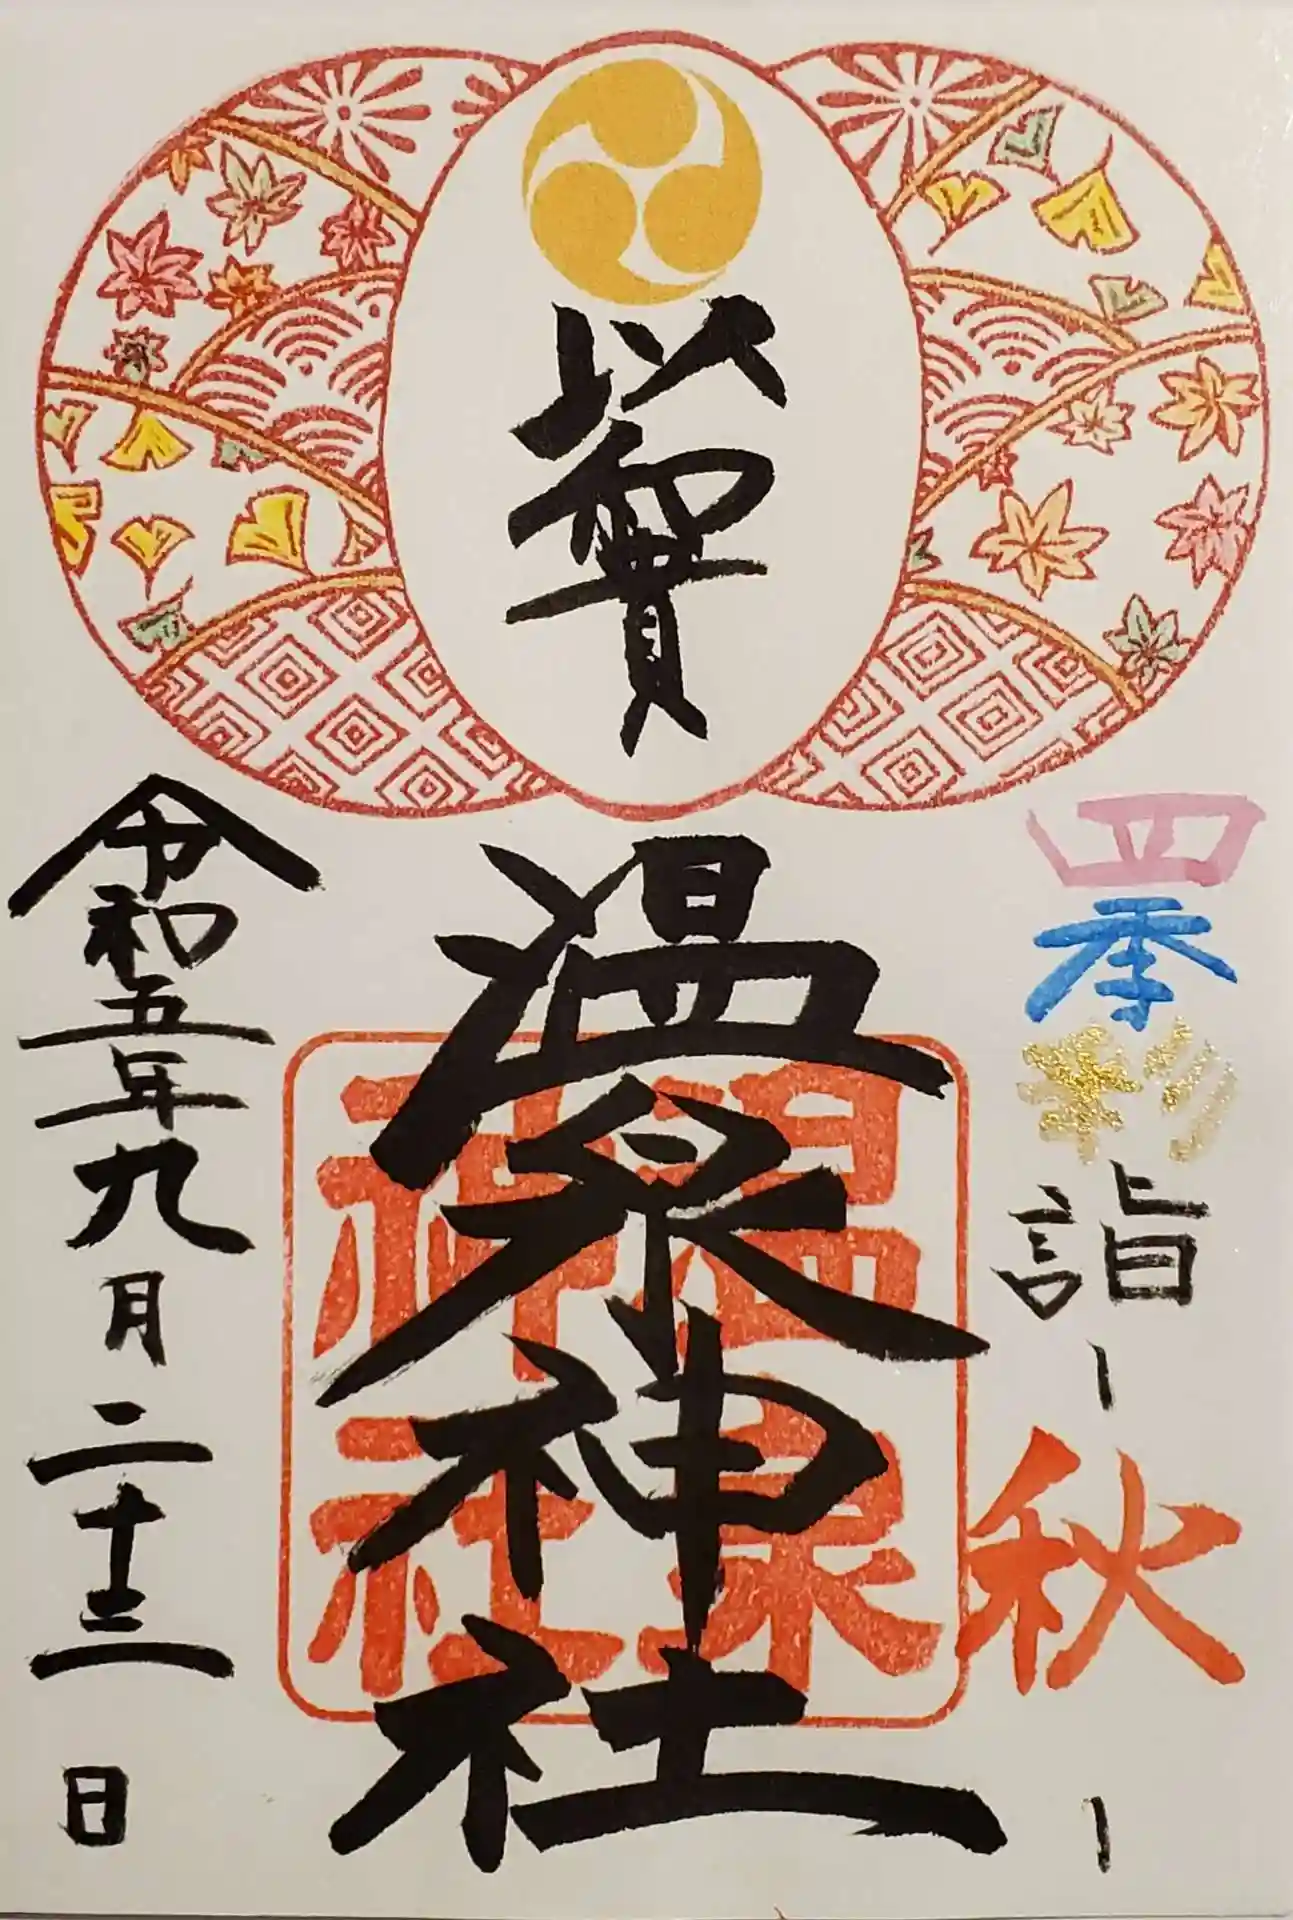 四季彩詣ー秋ー
温泉神社
温泉
神社
令和五年九月二十三日